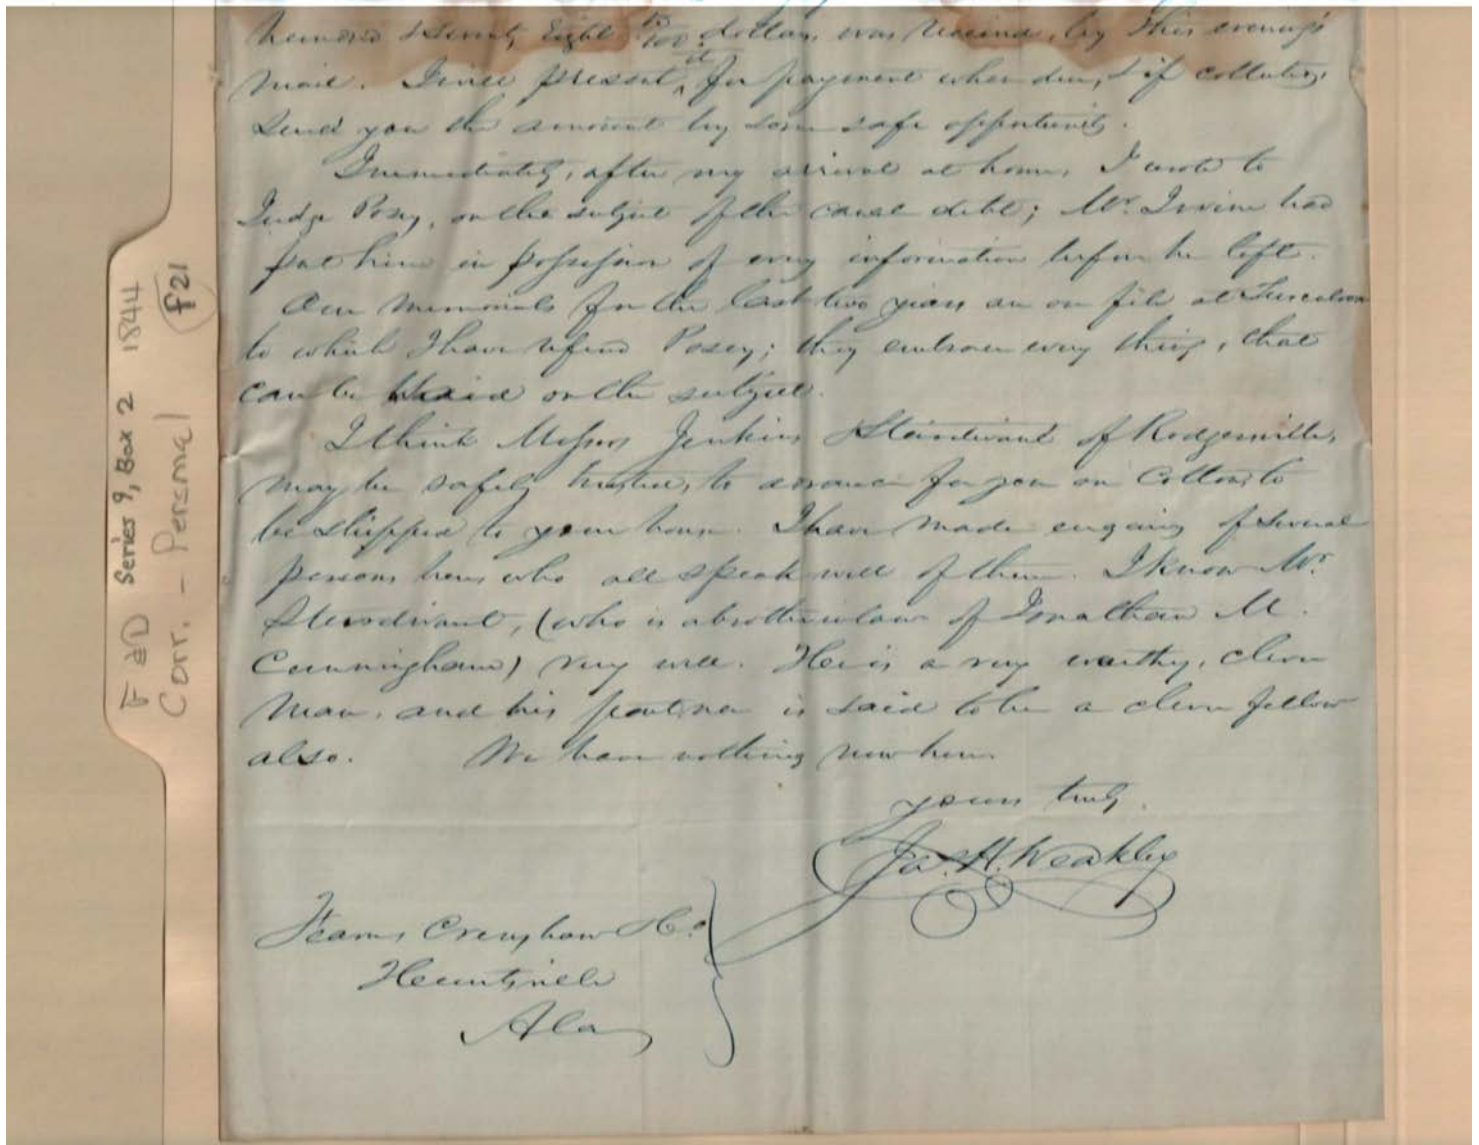 hundred & Seventy Eight 15/100 dollars, was received, by this evening's
mail. I will present, it for payment when due, & if collected,
send you the amount by some safe opportunity.
Immediately, after my arrival at home, I wrote to
Judge Posey, on the subject of the canal debt; Mr. Irvine had
put him in possession of every information before he left.
Our memorials for the last two years are on file at Tuscaloosa
to which I have referd Posey; they embrace every thing, that
can be said on the subject.
I think Messrs Jenkins & Sturdivant of Rodgersville,
may be safely trusted, to advance for you on Cotton, to
be shipped to your house. I have made enquiry of several
persons here, who all speak well of them. I know Mr.
Sturdivant, (who is a brother in law of Jonathan M.
Cunningham) very well. He is a very worthy, clever
man, and his partner is said to be a clever fellow
also. We have nothing new here.
yours truly
Ja. H. Weakley
Fearns Crenshaw & Co.
Huntsville
Ala
F & D Series 9, Box 2 1844
Corr. - Personal f21